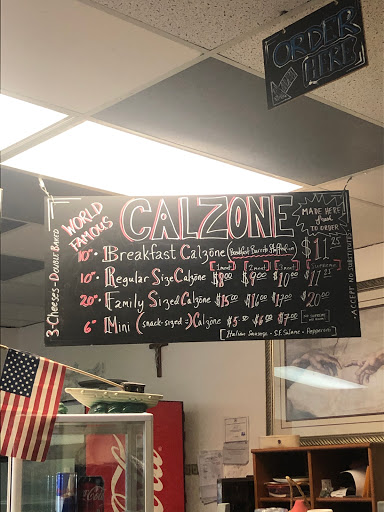 ORDER
HERE
WORLD
FAMOUS
CALZONE
MADE HERE
fresh
TO ORDER
3-Cheeses-Double Baked
10"- Breakfast Calzone (Breakfast Burrito Stuffed in) $11.25
[1 meat] [2 meat] [3 meat] [Supreme]
10"- Regular Size Calzone $8.00 $9.00 $10.00 $11.25
20"- Family Sized Calzone $15.00 $16.00 $17.00 $20.00
6" Mini (snack-sized =) Calzone $5.50 $6.00 $7.00 NO SUPREME
[Italian Sausage - S.F. Salame - Pepperoni]
Coca-Cola